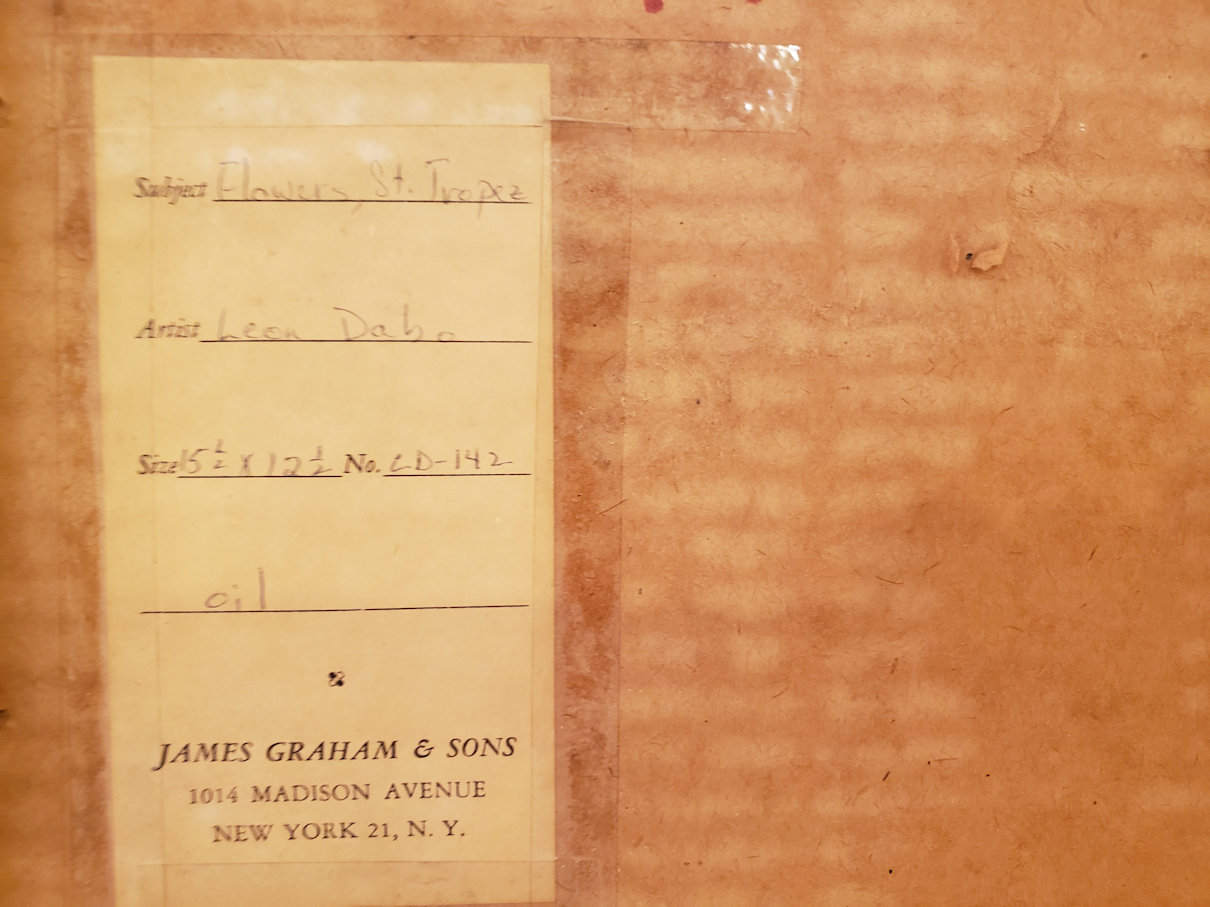 Subject Flowers, St. Tropez
Artist Leon Dabo
Size 15 1/2 x 12 1/2 No. LD-142
oil
JAMES GRAHAM & SONS
1014 MADISON AVENUE
NEW YORK 21, N. Y.